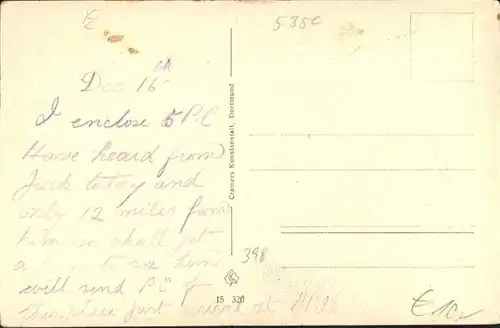 535c
Dec 16th
I enclose 5 P.C
Have heard from
Jack today and
only 12 miles from
him so shall get
a to see him
will send PC of
this place just at
Cramers Kunstanstalt, Dortmund
398
15 320
€ 10,-